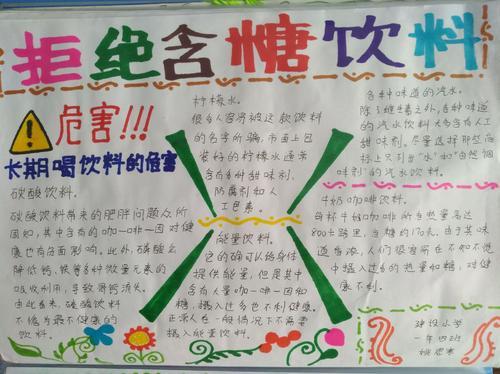 拒绝含糖饮料
危害!!!
长期喝饮料的危害
碳酸饮料。
碳酸饮料带来的肥胖问题众所
周知,其中含有的咖一啡一因对健
康也有负面影响。此外,磷酸会
降低钙、铁等各种微量元素的
吸收利用,导致骨钙流失。
由此看来,碳酸饮料
不愧为最不健康的
饮料。
柠檬水。
很多人容易被这款饮料
的名字所骗,市面上包
装好的柠檬水通常
含有多种甜味剂、
防腐剂和人
工色素。
能量饮料。
它的确可以给身体
提供能量,但是其中
含有大量咖一啡一因和
糖,摄入过多也不利健康。
正常人在一般情况下不需要
摄入能量饮料。
各种味道的汽水。
除了维生素之外,各种味道
的汽水饮料大多含有人工
甜味剂。尽量选择那些商
标上只列出“水”和“自然调
味剂”的汽水饮料。
牛奶咖啡饮料。
每杯牛奶咖啡所含热量高达
800千路里,含糖约170克。由于其味
道香浓,人们很容易在不知不觉
中摄入过多的热量和糖,对健
康不利。
建设小学
一年四班